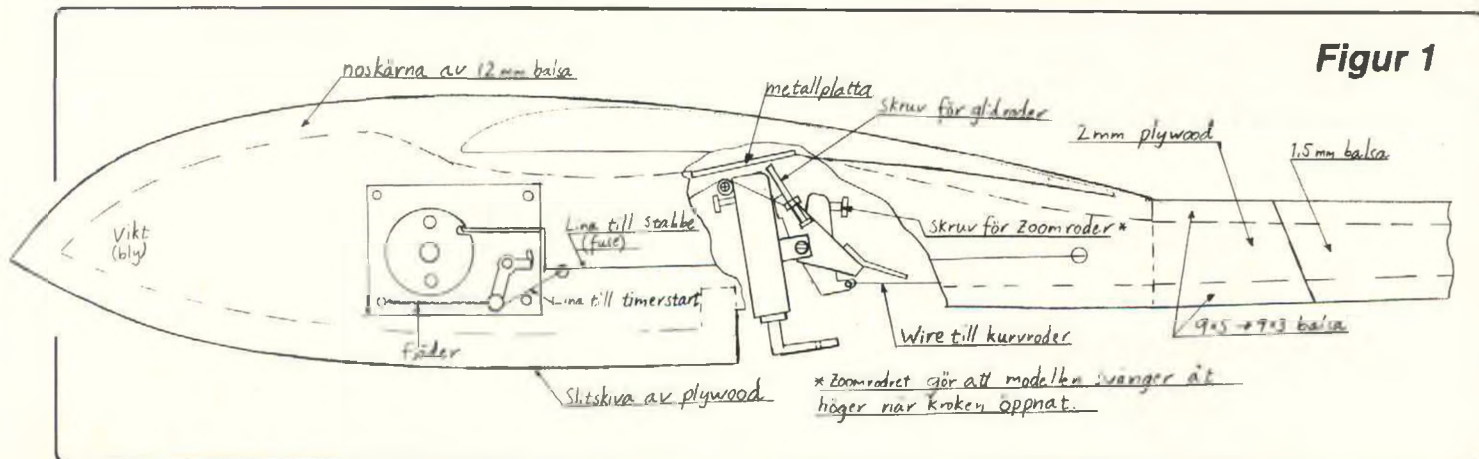 Figur 1
noskärna av 12 mm balsa
metallplatta
skruv för glidroder
2 mm plywood
1.5 mm balsa
Vikt
(bly)
Lina till stabbe
(fuse)
skruv för Zoomroder*
Lina till timerstart
fjäder
Wire till kurvroder
9×5 → 9×3 balsa
Slitskiva av plywood
* Zoomrodret gör att modellen svänger åt
höger när kroken öppnat.